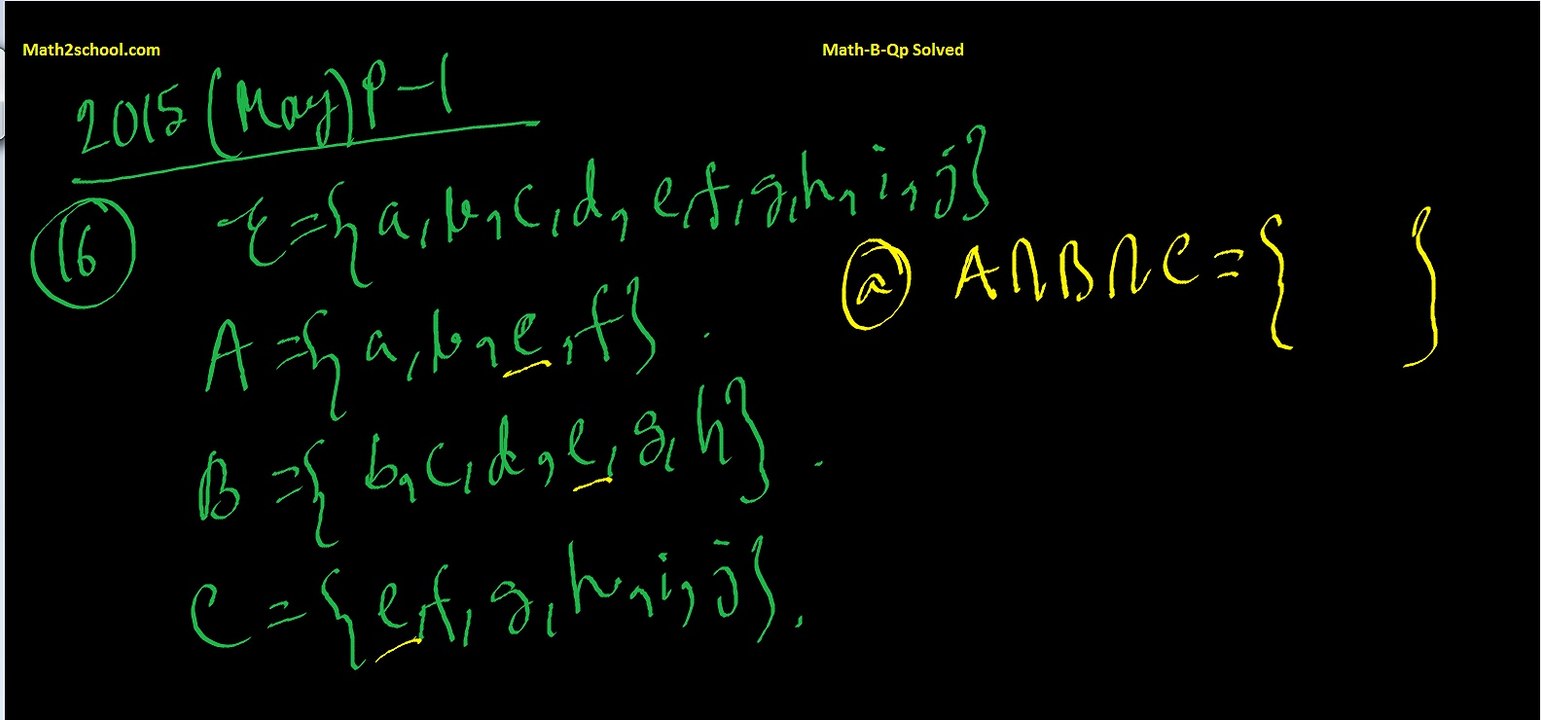 Math2school.com
Math-B-Qp Solved
2015 (May) P-1
16
ℰ = {a, b, c, d, e, f, g, h, i, j}
A = {a, b, e, f}
B = {b, c, d, e, g, h}
C = {e, f, g, h, i, j}
a A∩B∩C = { }